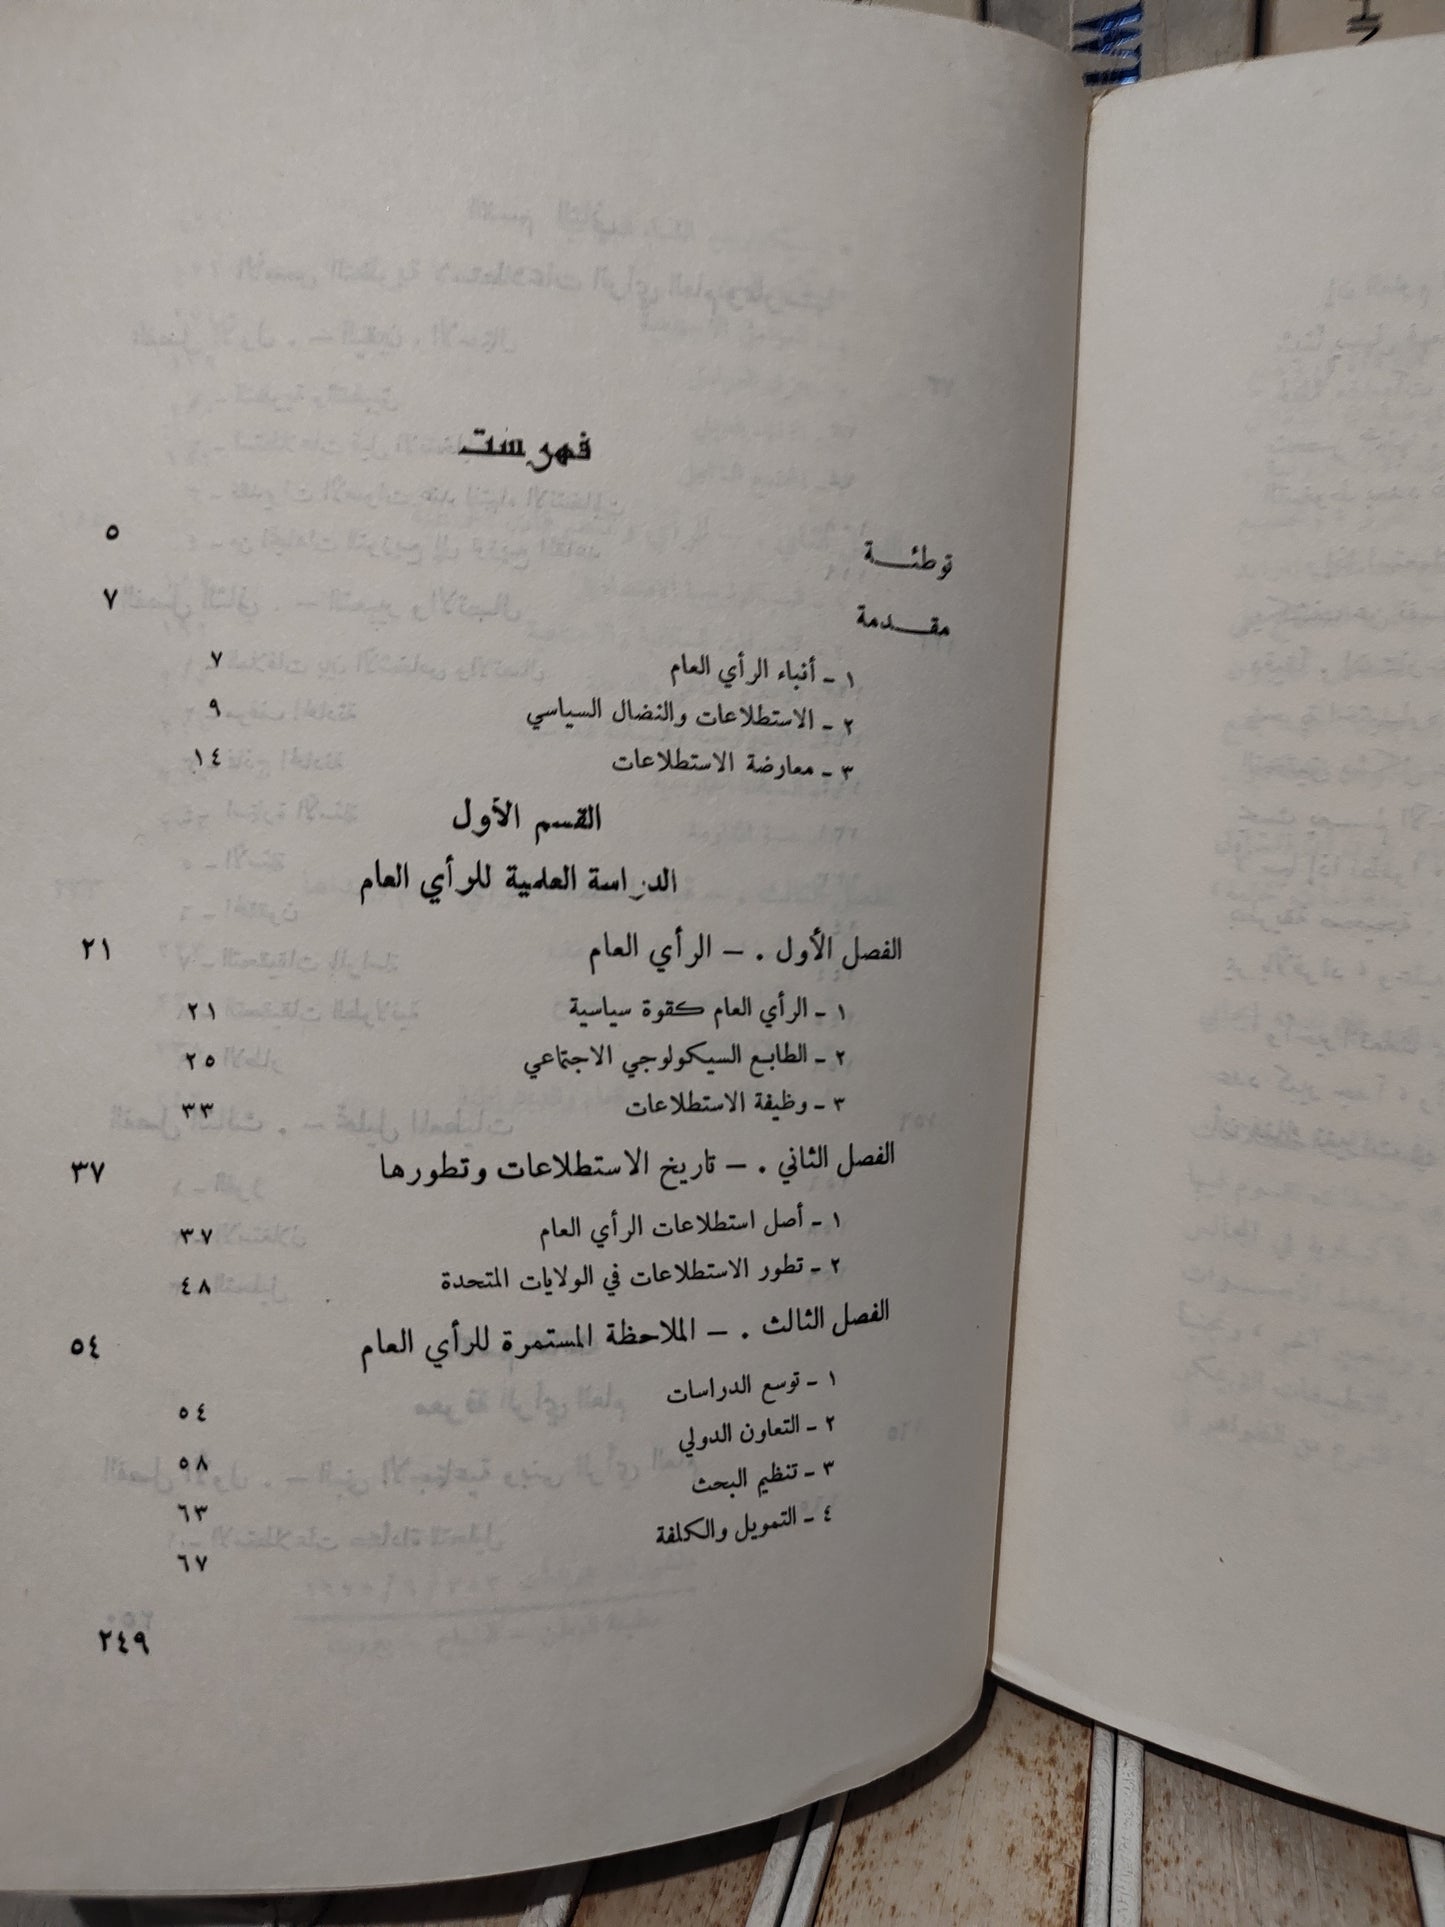 فهرست
توطئـــة ٥
مقـــدمة ٧
١ - أنباء الرأي العام ٧
٢ - الاستطلاعات والنضال السياسي ٩
٣ - معارضة الاستطلاعات ١٤
القسم الأول
الدراسة العلمية للرأي العام
الفصل الأول . – الرأي العام ٢١
١ - الرأي العام كقوة سياسية ٢١
٢ - الطابع السيكولوجي الاجتماعي ٢٥
٣ - وظيفة الاستطلاعات ٣٣
الفصل الثاني . – تاريخ الاستطلاعات وتطورها ٣٧
١ - أصل استطلاعات الرأي العام ٣٧
٢ - تطور الاستطلاعات في الولايات المتحدة ٤٨
الفصل الثالث . – الملاحظة المستمرة للرأي العام ٥٤
١ - توسع الدراسات ٥٤
٢ - التعاون الدولي ٥٨
٣ - تنظيم البحث ٦٣
٤ - التمويل والكلفة ٦٧
٢٤٩